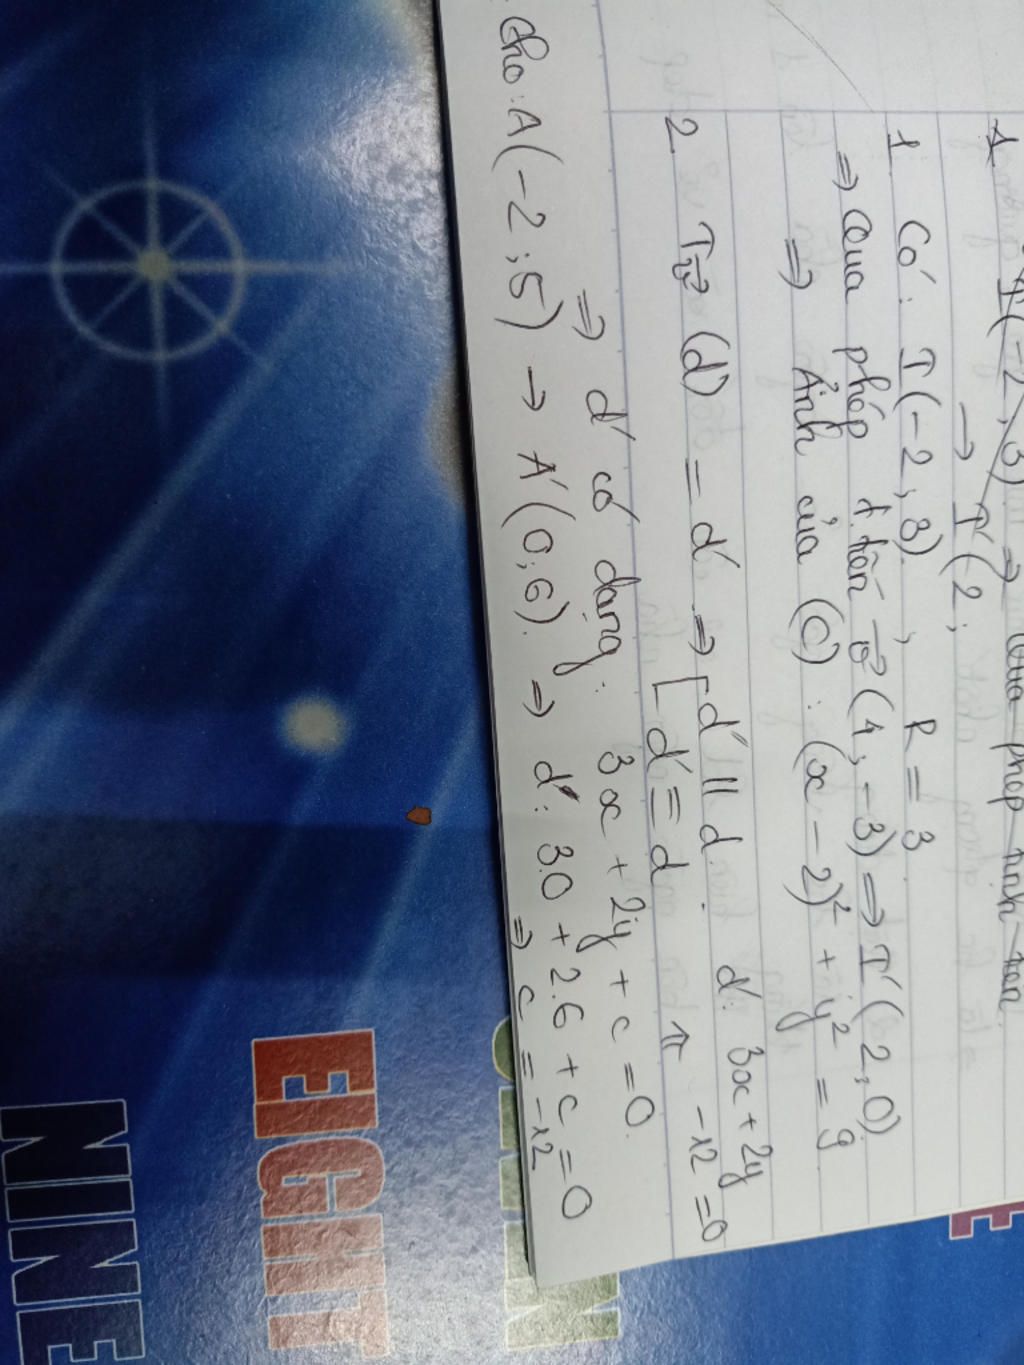 I(-2, 3) ⇒ Qua phép tịnh tiến
→ I'(2;
1. Có: I(-2, 3), R = 3
⇒ Qua phép t.tiến v⃗(4, -3) ⇒ I'(2, 0)
⇒ Ảnh của (C): (x - 2)² + y² = 9
d': 3x + 2y - 12 = 0
2. Tv⃗ (d) = d' ⇒ [ d' // d
d' ≡ d
⇒ d' có dạng: 3x + 2y + c = 0.
Cho: A(-2; 5) → A'(0; 6). ⇒ d': 3.0 + 2.6 + c = 0
⇒ c = -12
EIGHT
NINE